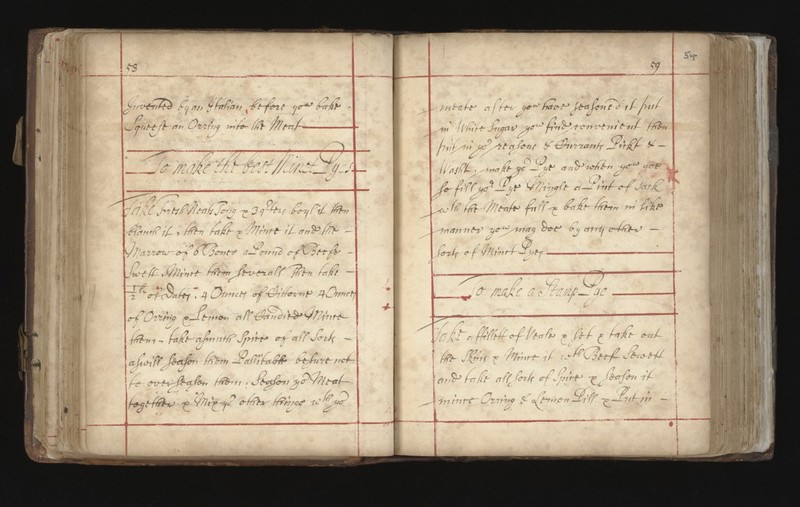 58
Invented by an Italian, before yow bake
Squeese an Orring into the Meat
To make the best Mince Pyes
Take fresh Neats Tong x 3 qters boyl it then
blanch it, then take x Mince it and the
Marrow of 6 Bones a Pound of Beefe
Swett Mince them severall Then take
of Dates, 4 Ounces of Sittorne 4 Ounces
of Orring x Lemon all Candied Mince
them, take asmuch Spice of all Sorts
aswill Season them Pallitable besure not
to over season them. Season yor Meat
together x Mix ye other things wth yor
59
meate after yow have seasoned it put
in White Sugar yow finde convenient then
put in yor reasons & Currants Pickt &
Washt, make yor Pye and when yow goe
to fill yor Pye Mingle a Pint of Sack
wth the Meate fill x bake them in like
manner yow may doe by any other
sorts of Minct Pyes
To make a Pye
Take a fillett of Veale x Set x take out
the Skin x Mince it wth Beef Sewett
and take all sorts of Spice x season it
mince Orring & Lemon Pill x Put in